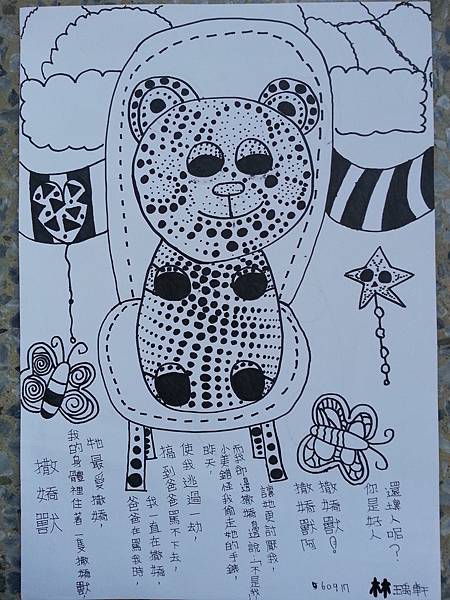 撒嬌獸
我的身體裡住着一隻撒嬌獸
牠最愛撒嬌，
爸爸在罵我時
我一直在撒嬌，
搞到爸爸罵不下去，
使我逃過一劫
昨天，
小美錯怪我偷走她的手鍊，
而我卻邊撒嬌邊說「不是我」
讓她更討厭我，
撒嬌獸阿
撒嬌獸！
你是好人
還壞人呢？
609 17
林瑀軒